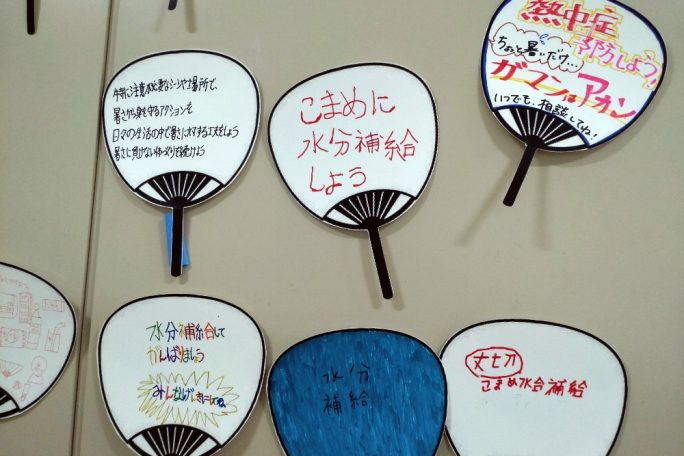 特に注意が必要なシーンや場所で、
暑さから身を守るアクションを
日々の生活の中で暑さに対する工夫をしよう
暑さに負けない体づくりを続けよう
こまめに
水分補給
しよう
熱中症
予防しよう!
ちょっと暑いだけ…
ガマンはアカン
いつでも、相談してね!
水分補給して
がんばりましょう
水分
補給
大切
こまめ水分補給